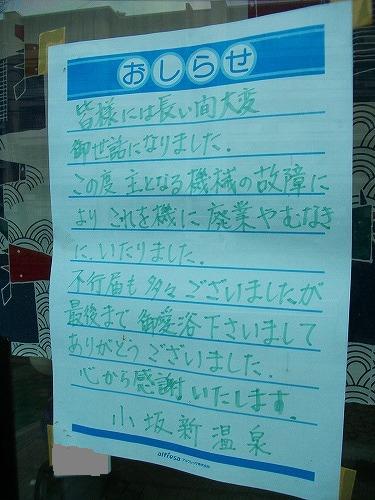 おしらせ
皆様には長い間大変
御世話になりました.
この度 主となる機械の故障に
より これを機に 廃業やむなき
に、いたりました.
不行届も 多々 ございましたが
最後まで 御愛浴下さいまして
ありがとう ございました.
心から感謝 いたします.
小坂新温泉
altfosa